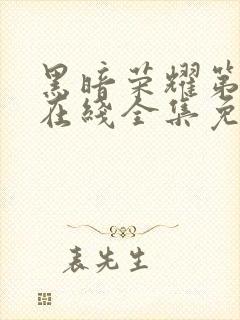 黑暗荣耀第
在线全集免
表先生